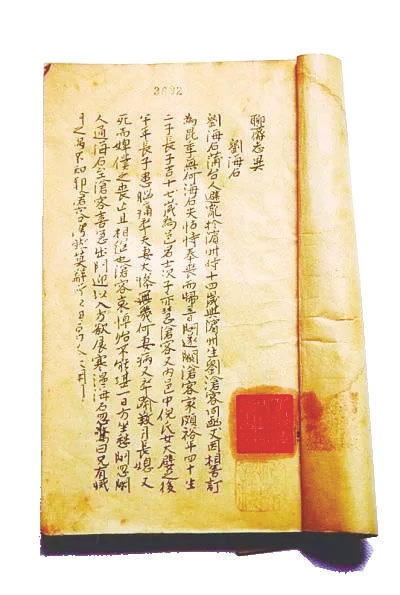 3692
聊齋志異
劉海石
劉海石蒲台人避亂於濱州時十四歲與濱州生劉滄客同函丈因相善訂
為昆季無何海石失怙恃奉喪而歸音問遂闕滄客家頗裕年四十生
二子長子吉十七歲為邑名士次子亦慧滄客又內邑中倪氏女大嬖之後
半年長子患腦痛卒夫妻大慘無幾何妻病又卒逾數月長媳又
死而婢僕之喪亡且相繼也滄客哀悼殆不能堪一日方坐愁間忽閽
人通海石至滄客喜急出門迎以入方欲展寒溫海石忽驚曰兄有滅
門之禍不知耶滄客愕然莫解